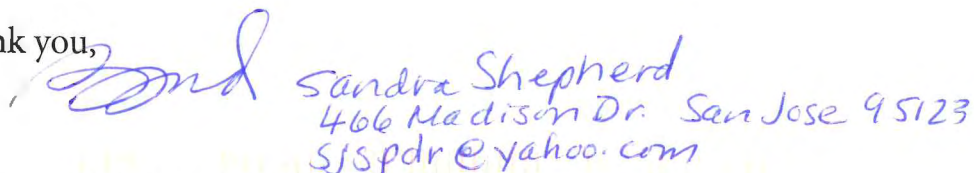 nk you,
Sandra Shepherd
466 Madison Dr. San Jose 95123
sjspdr@yahoo.com